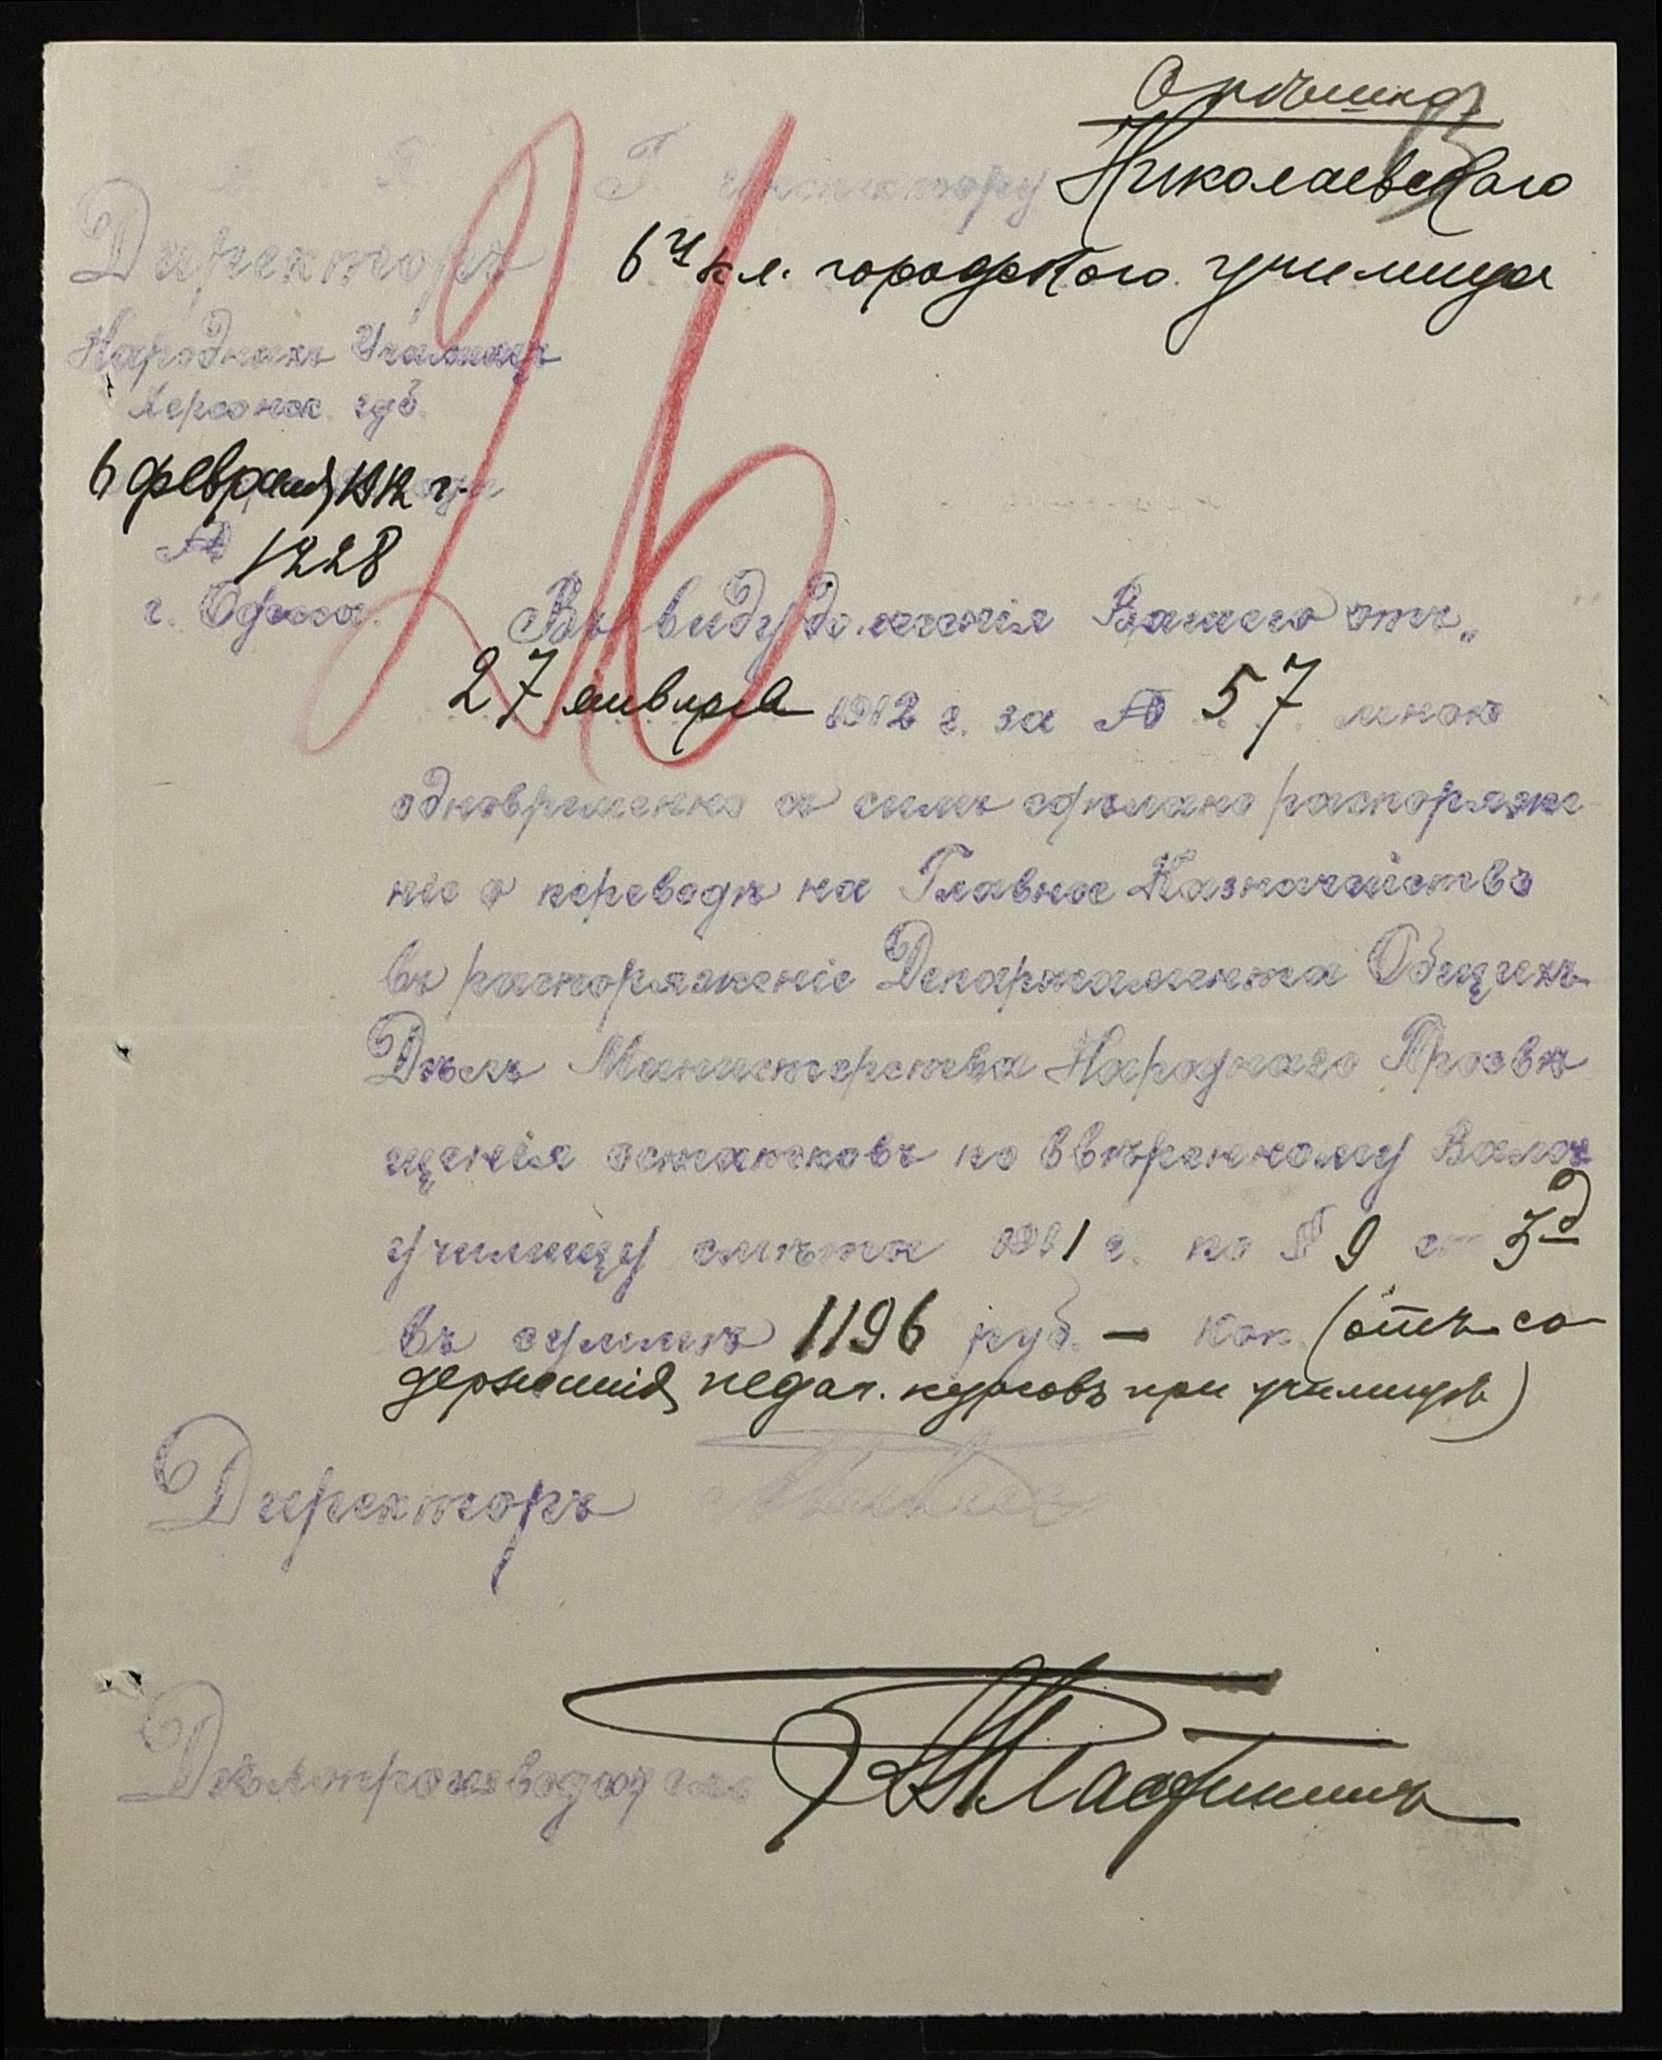 Срочно
Г. Инспектору Николаевскаго
6ти кл. городского училища
Директоръ
Народныхъ Училищъ
Херсонск. губ.
6 февраля 1912 г.
№ 1228
г. Одесса.
26
Въ виду донесенія Вашего отъ
27 января 1912 г. за № 57 мною
одновременно съ симъ сдѣлано распоряже
ніе о переводѣ на Главное Казначейство
въ распоряженіе Департамента Общихъ
Дѣлъ Министерства Народнаго Просвѣ
щенія остатковъ по ввѣренному Вамъ
училищу смѣты 1911 г. по § 9 ст 3д
въ суммѣ 1196 руб. — коп. (отъ со-
держанія педаг. курсовъ при училищѣ)
Директоръ
Дѣлопроизводитель